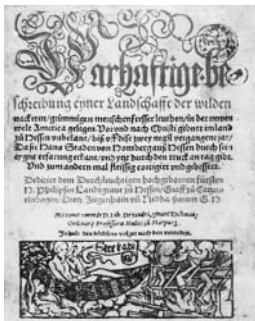 Warhaftige be-
schreibung eyner Landschafft der wilden
nacketen/ grimmigen menschenfresser leuthen/ in der newen
welt America gelegen. Vor und nach Christi geburt im land
zů Hessen unbekant/ biß uff dise zwey nechst vergangene jar/
Da sie Hans Staden von Homberg auß Hessen durch sei-
ne eygne erfarung erkant/ und yetz durch den truck an tag gibt.
Und zum andern mal fleissig corrigirt und gebessert.
Dedicirt dem Durchleuchtigen hochgebornen fürsten
H. Philipsen Landtgrave zů Hessen/ Graff zů Catzen-
elnbogen/ Dietz/ Ziegenhain uñ Nidda/ seinem G. H.
Mit eyner vorrede D. Joh. Dryandri/ genant Eychman/
Ordinarij Professoris Medici zů Marpurg.
Inhalt des büchlins volget nach den vorreden.